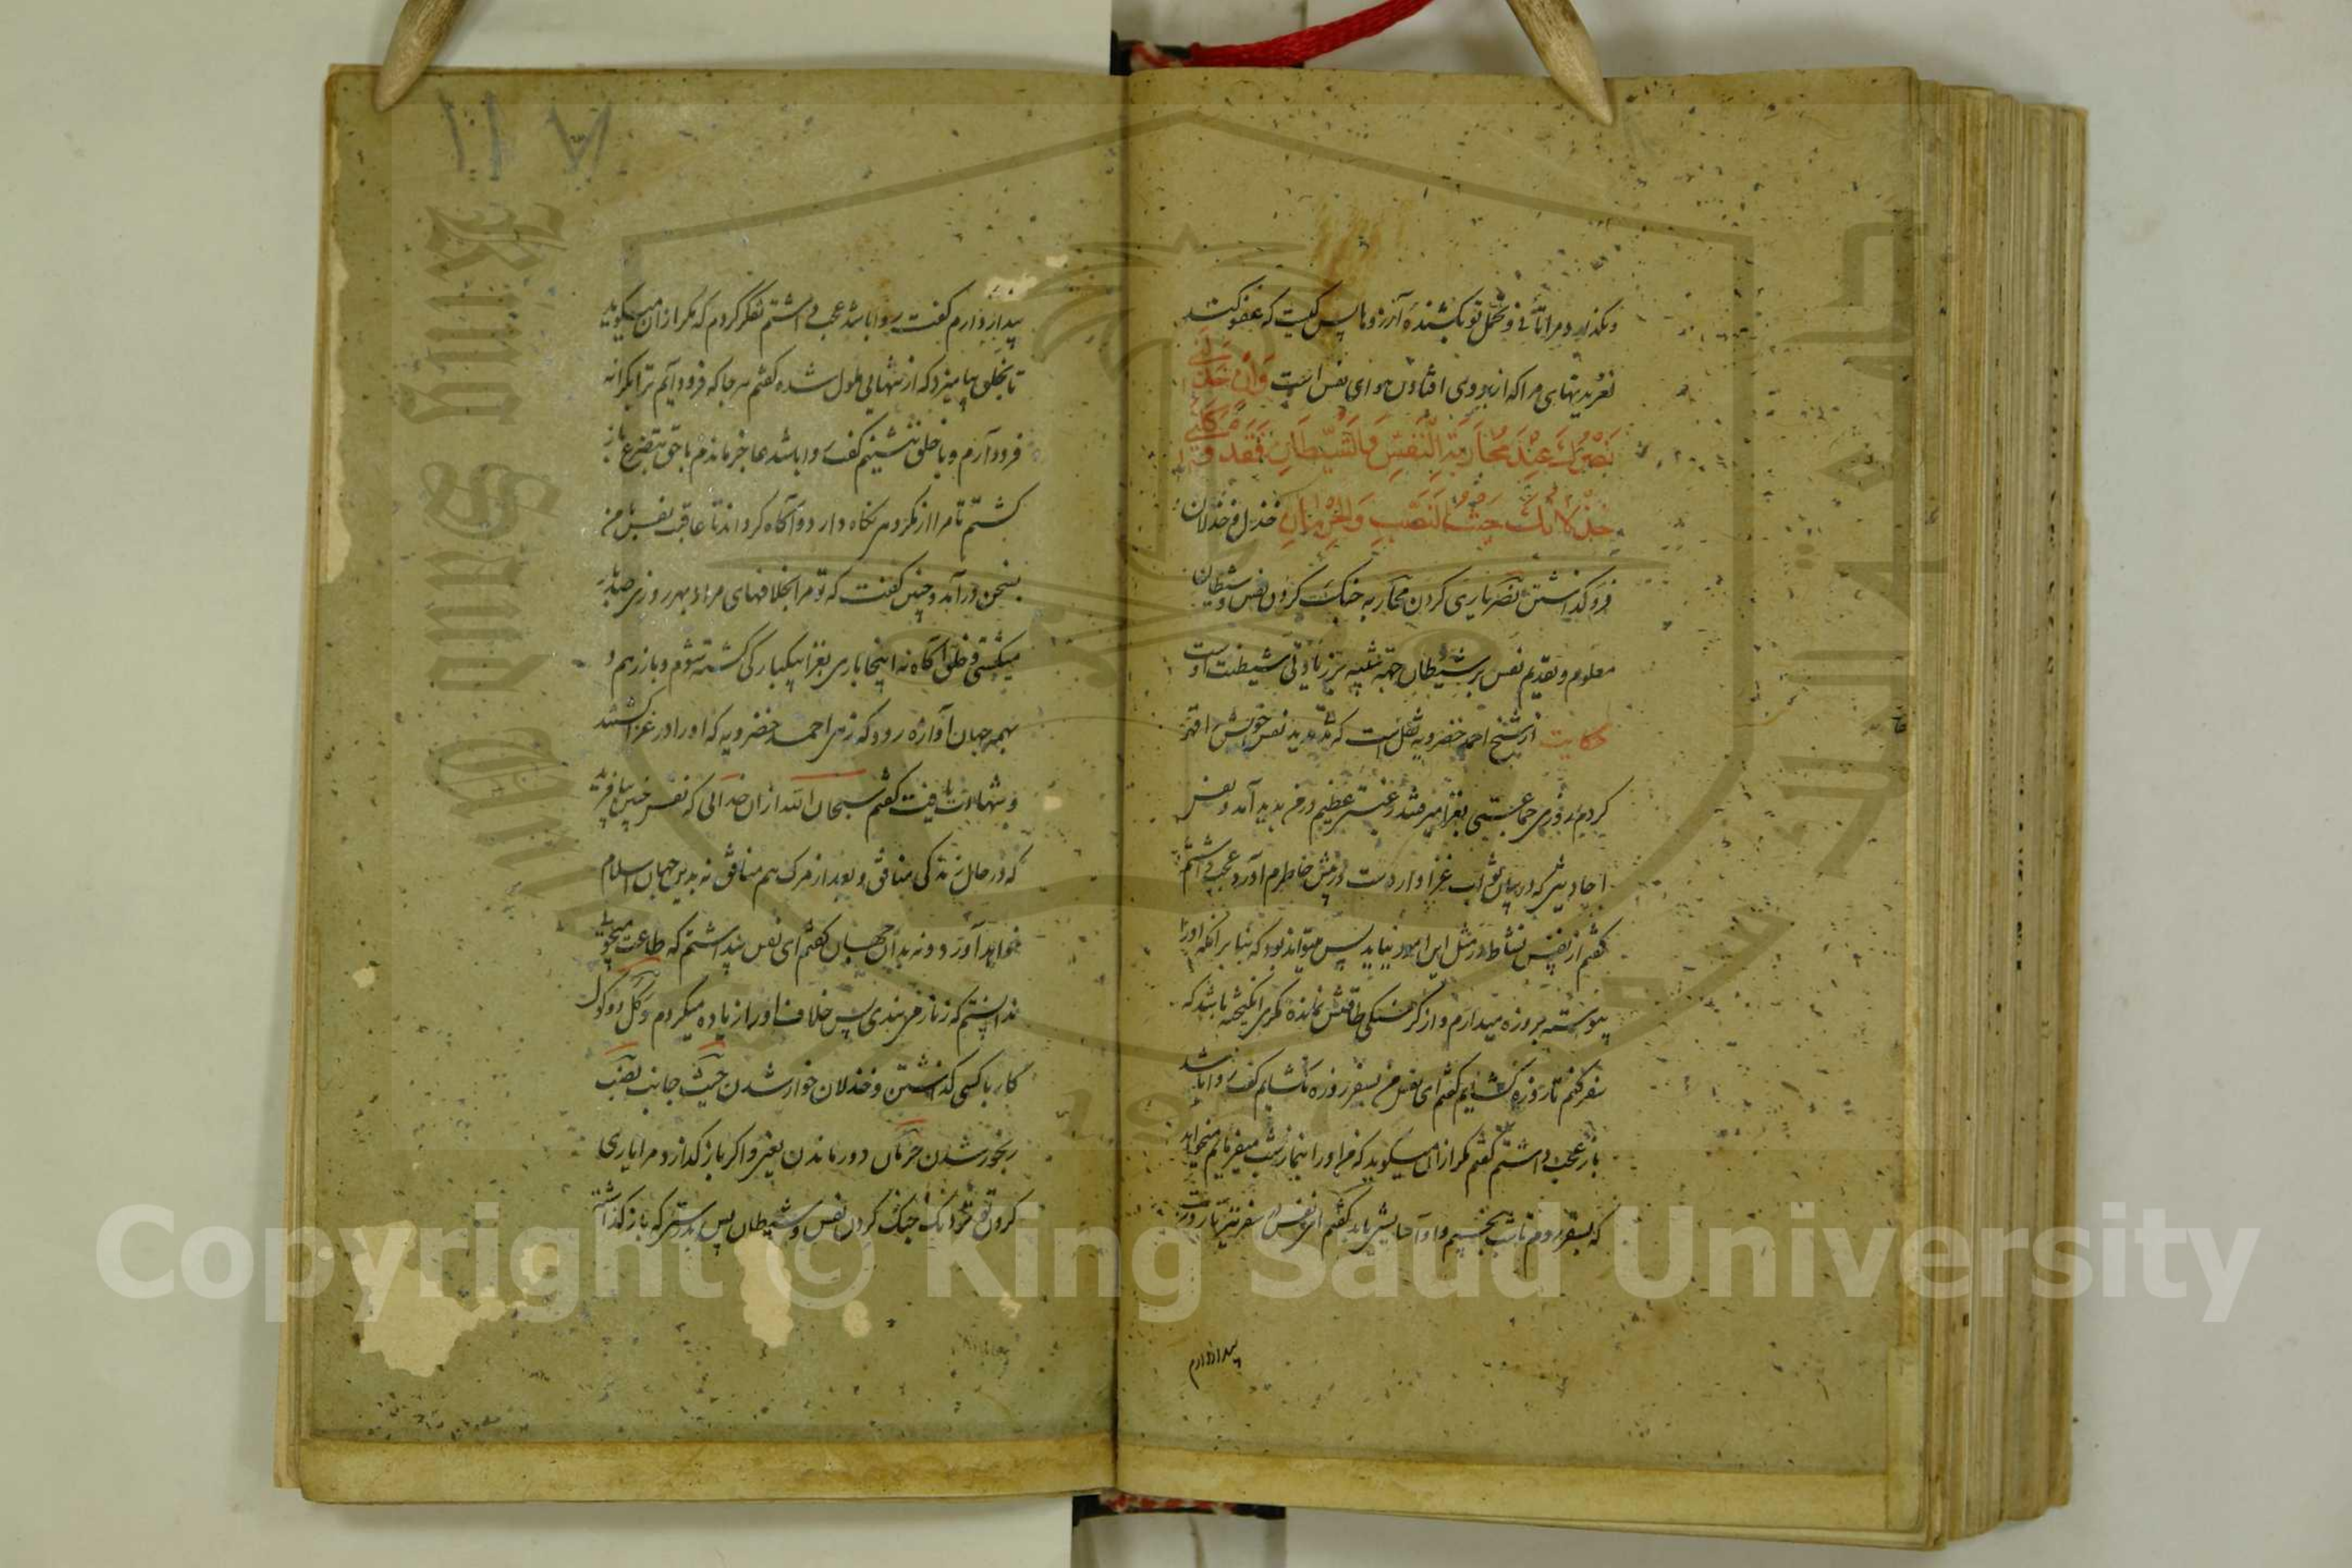 وبگذارد مرا تأنی و تحمل تو بکشنده آرزوها پس کیست که عفو کند
لغزیدنهای مرا که از بدروی افتادن هوای نفس است وَاِنْ خَذَلَنی
نَصْرُكَ عِنْدَ مُحَارَبَةِ النَّفْسِ وَالشَّیْطَانِ فَقَدْ وَكَلَنِی
خِذْلَانُكَ حَیْثُ النَّصَبِ وَالْحِرْمَانِ خذل و خذلان
فرو گذاشتن نصر یاری کردن محاربه جنگ کردن نفس و شیطان
معلوم و تقدیم نفس بر شیطان جهة تنبیه بر زیادتی شیطنت اوست
حکایت از شیخ احمد خضرویه نقل است که مدت مدید نفس خویش را قهر
کردم روزی جماعتی بغزا میرفتند رغبتی عظیم در من پدید آمد و نفس
احادیثی که در بیان ثواب غزا وارد است در پیش خاطرم آورد عجب داشتم
گفتم از نفس نشاط در مثل این امور نیاید پس میتواند بود که بنا بر آنکه او را
پیوسته بروزه میدارم و از گرسنگی طاقتش نمانده مکری انگیخته باشد که
سفر کنم تا روزه گشایم گفتم ای نفس من بسفر روزه نگشایم گفت روا باشد
باز عجب داشتم گفتم مگر از آن میگوید که من او را بنماز شب میفرمایم میخواهد
که بسفر روم تا شب بخسبم و او آسایش یابد گفتم ای نفس در سفر نیز تا روزت
بیدار دارم
۱۱۷
بیدار دارم گفت روا باشد عجب داشتم تفکر کردم که مگر از آن میگوید
تا بخلق بیامیزد که از تنهایی ملول شده گفتم هر جا که فرود آیم ترا بکرانه
فرود آرم و با خلق ننشینم گفت روا باشد عاجز ماندم با حق بتضرع باز
گشتم تا مرا از مکر وی نگاه دارد و آگاه گرداند تا عاقبت نفس با من
بسخن درآمد و چنین گفت که تو مرا بخلافهای مراد بهر روزی صد بار
میکشتی و خلق آگاه نه اینجا باری بغزا بیکبارگی کشته شوم و باز رهم و
بهمه جهان آوازه رود که زهی احمد خضرویه که او را در غزا کشتند
و شهادت یافت گفتم سبحان الله از آن خدائی که نفس چنین بیافرید
که در حال زندگی منافق و بعد از مرگ هم منافق نه بدین جهان اسلام
خواهد آورد و نه بدان جهان گفتم ای نفس پنداشتم که طاعت میجویی
ندانستم که زنار می بندی پس خلاف او را زیاده میکردم وکل و وکول
کار با کسی گذاشتن و خذلان خوار شدن حیث جانب نصب
رنجور شدن حرمان دور ماندن یعنی و اگر باز گذارد مرا یاری
کردن تو نزدیک جنگ کردن نفس و شیطان پس بدرستی که باز گذاشته